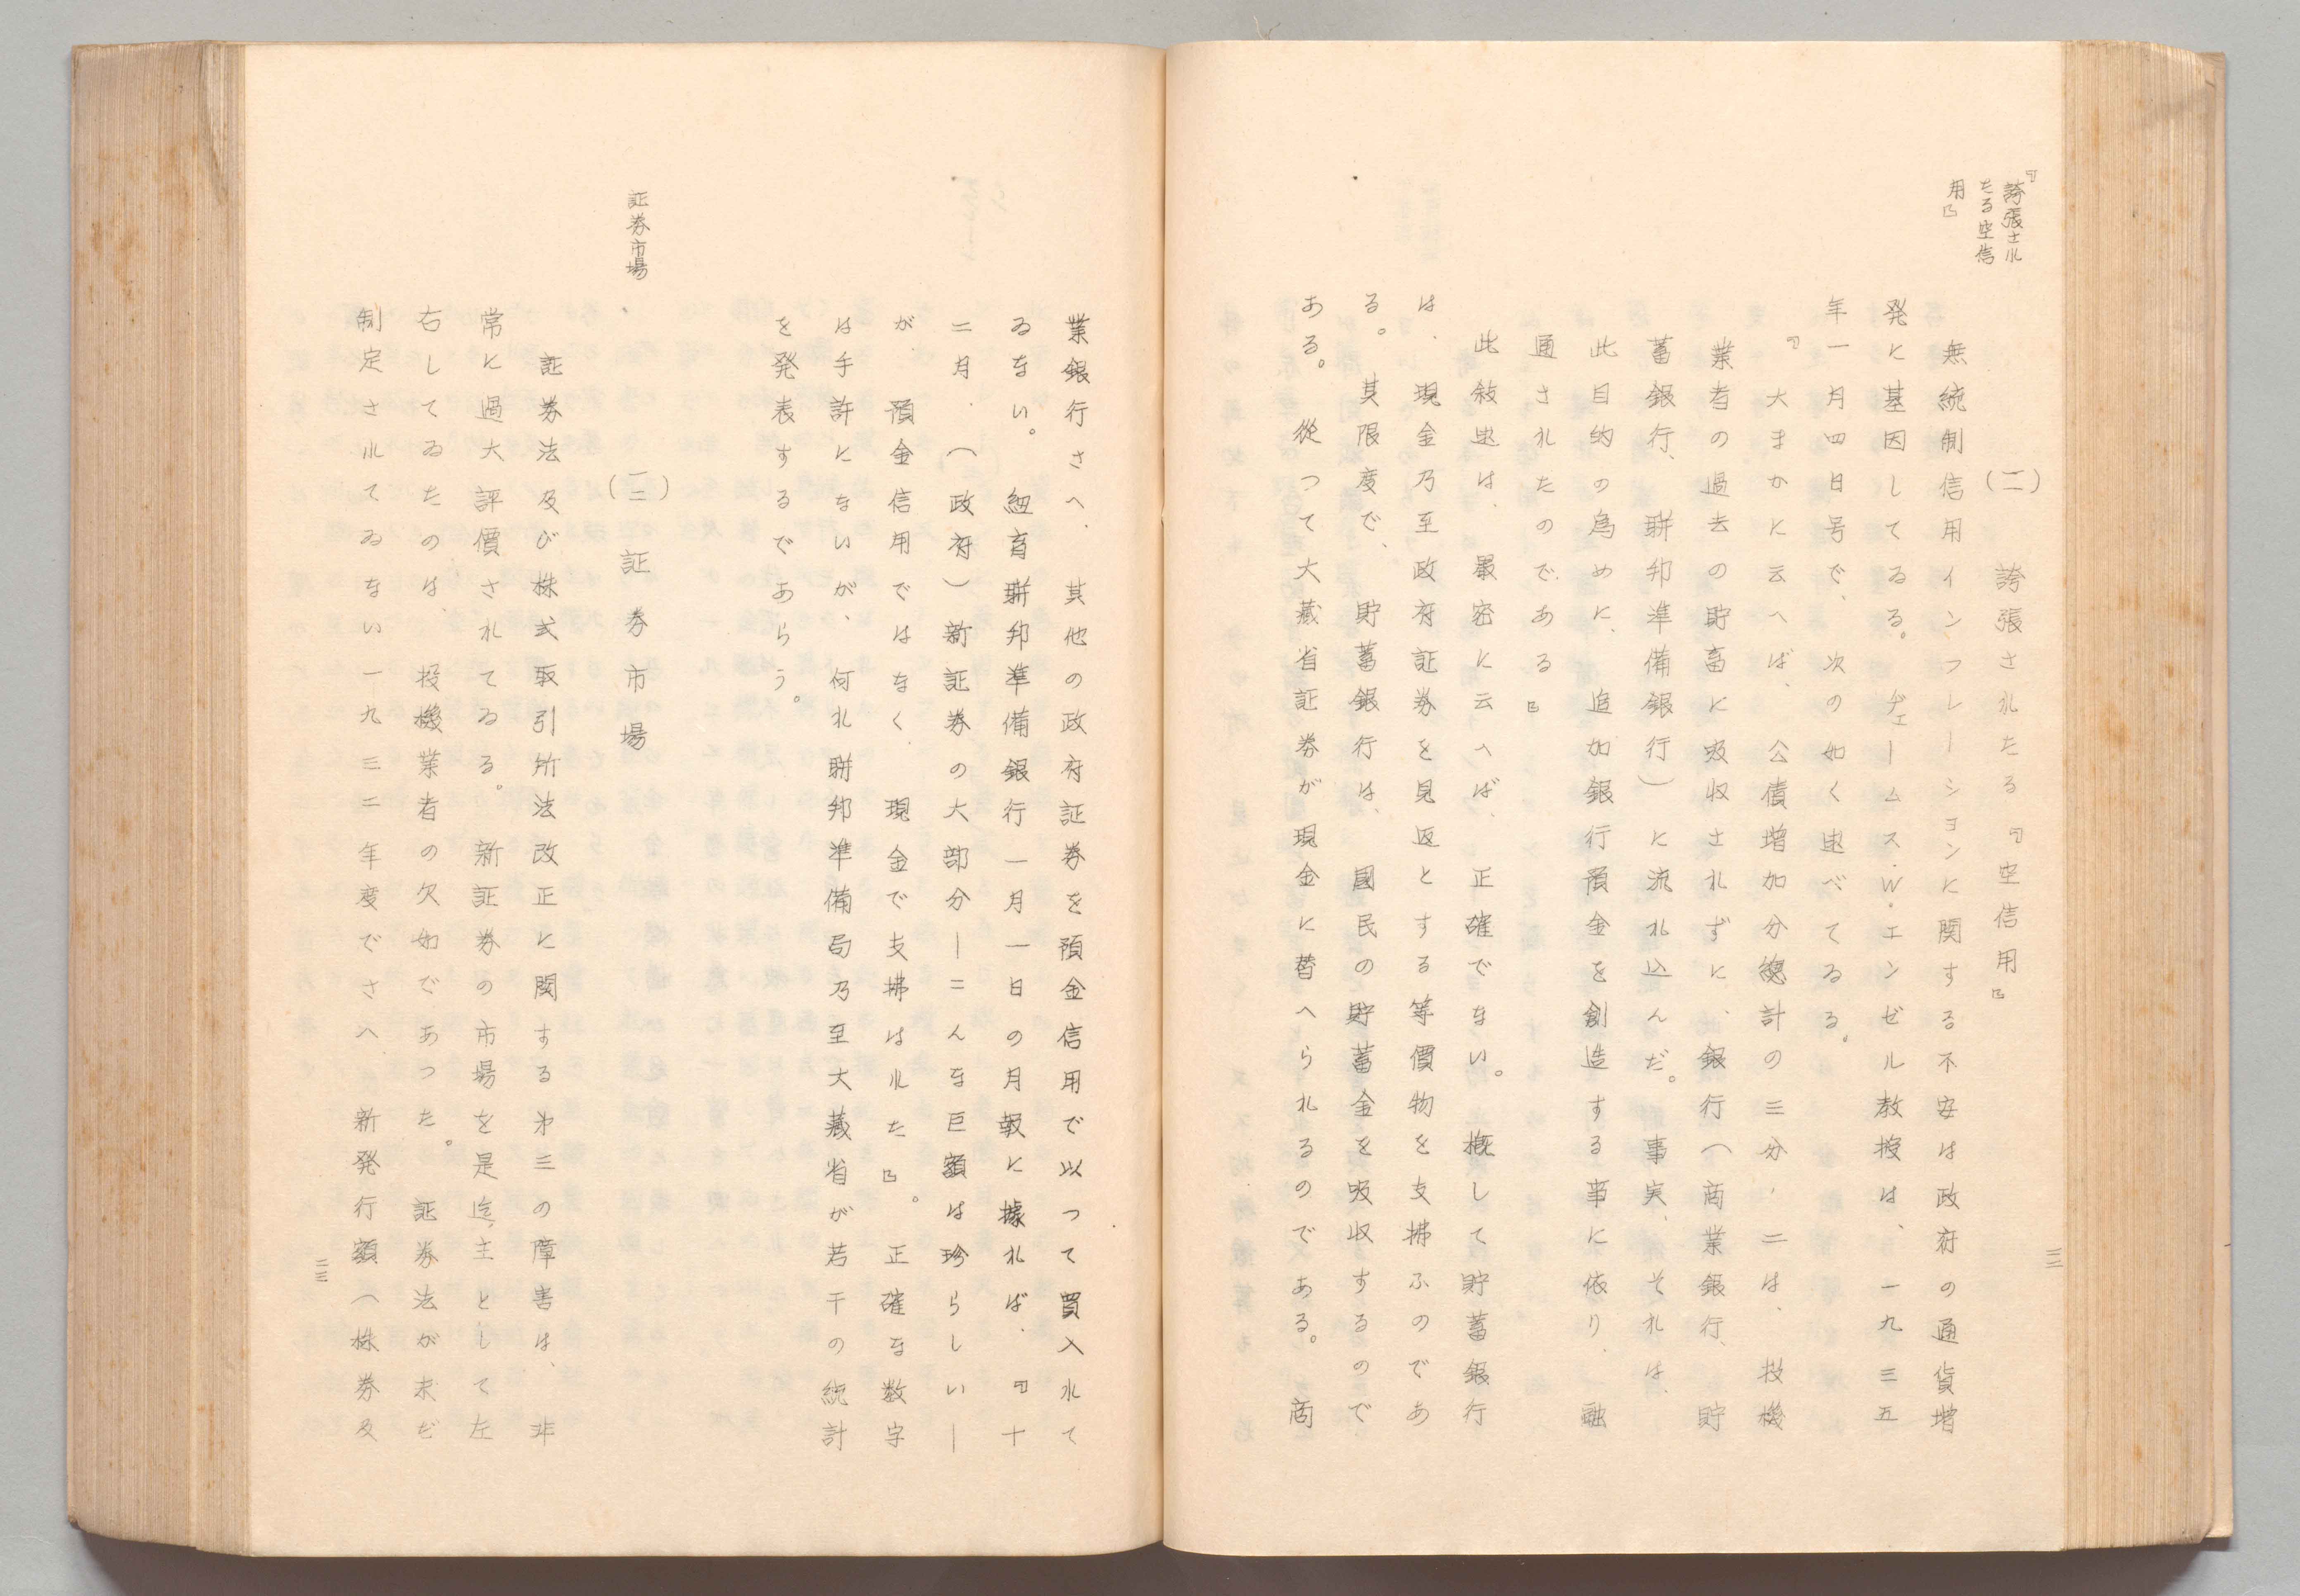 『誇張サル
たる空信
用』
(二)　誇張されたる『空信用』
無統制信用インフレーションに関する不安は政府の通貨増
発に基因してゐる。ヂェームス・W・エンゼル教授は、一九三五
年一月四日号で、次の如く述べてゐる。
『大まかに云へば、公債増加分総計の三分ノ二は、投機
業者の過去の貯畜に吸収されずに、銀行(商業銀行、貯
蓄銀行、聯邦準備銀行)に流れ込んだ。事実、それは、
此目的の為めに、追加銀行預金を創造する事に依り、融
通されたのである』
此敍述は、嚴密に云へば、正確でない。概して貯蓄銀行
は、現金乃至政府証券を見返とする等價物を支拂ふのであ
る。其限度で、貯蓄銀行は、國民の貯蓄金を吸収するので
ある。從つて大藏省証券が現金に替へられるのである。商
二二
業銀行さへ、其他の政府証券を預金信用で以つて買入れて
ゐない。紐育聯邦準備銀行一月一日の月報に據れば、『十
二月、(政府)新証券の大部分―こんな巨額は珍らしい―
が、預金信用ではなく、現金で支拂はれた』。正確な数字
は手許にないが、何れ聯邦準備局乃至大藏省が若干の統計
を発表するであらう。
証券市場
(三)　証券市場
証券法及び株式取引所法改正に関する第三の障害は、非
常に過大評價されてゐる。新証券の市場を是迄、主として左
右してゐたのは、投機業者の欠如であつた。証券法が未だ
制定されてゐない一九三二年度でさへ、新発行額(株券及
二三